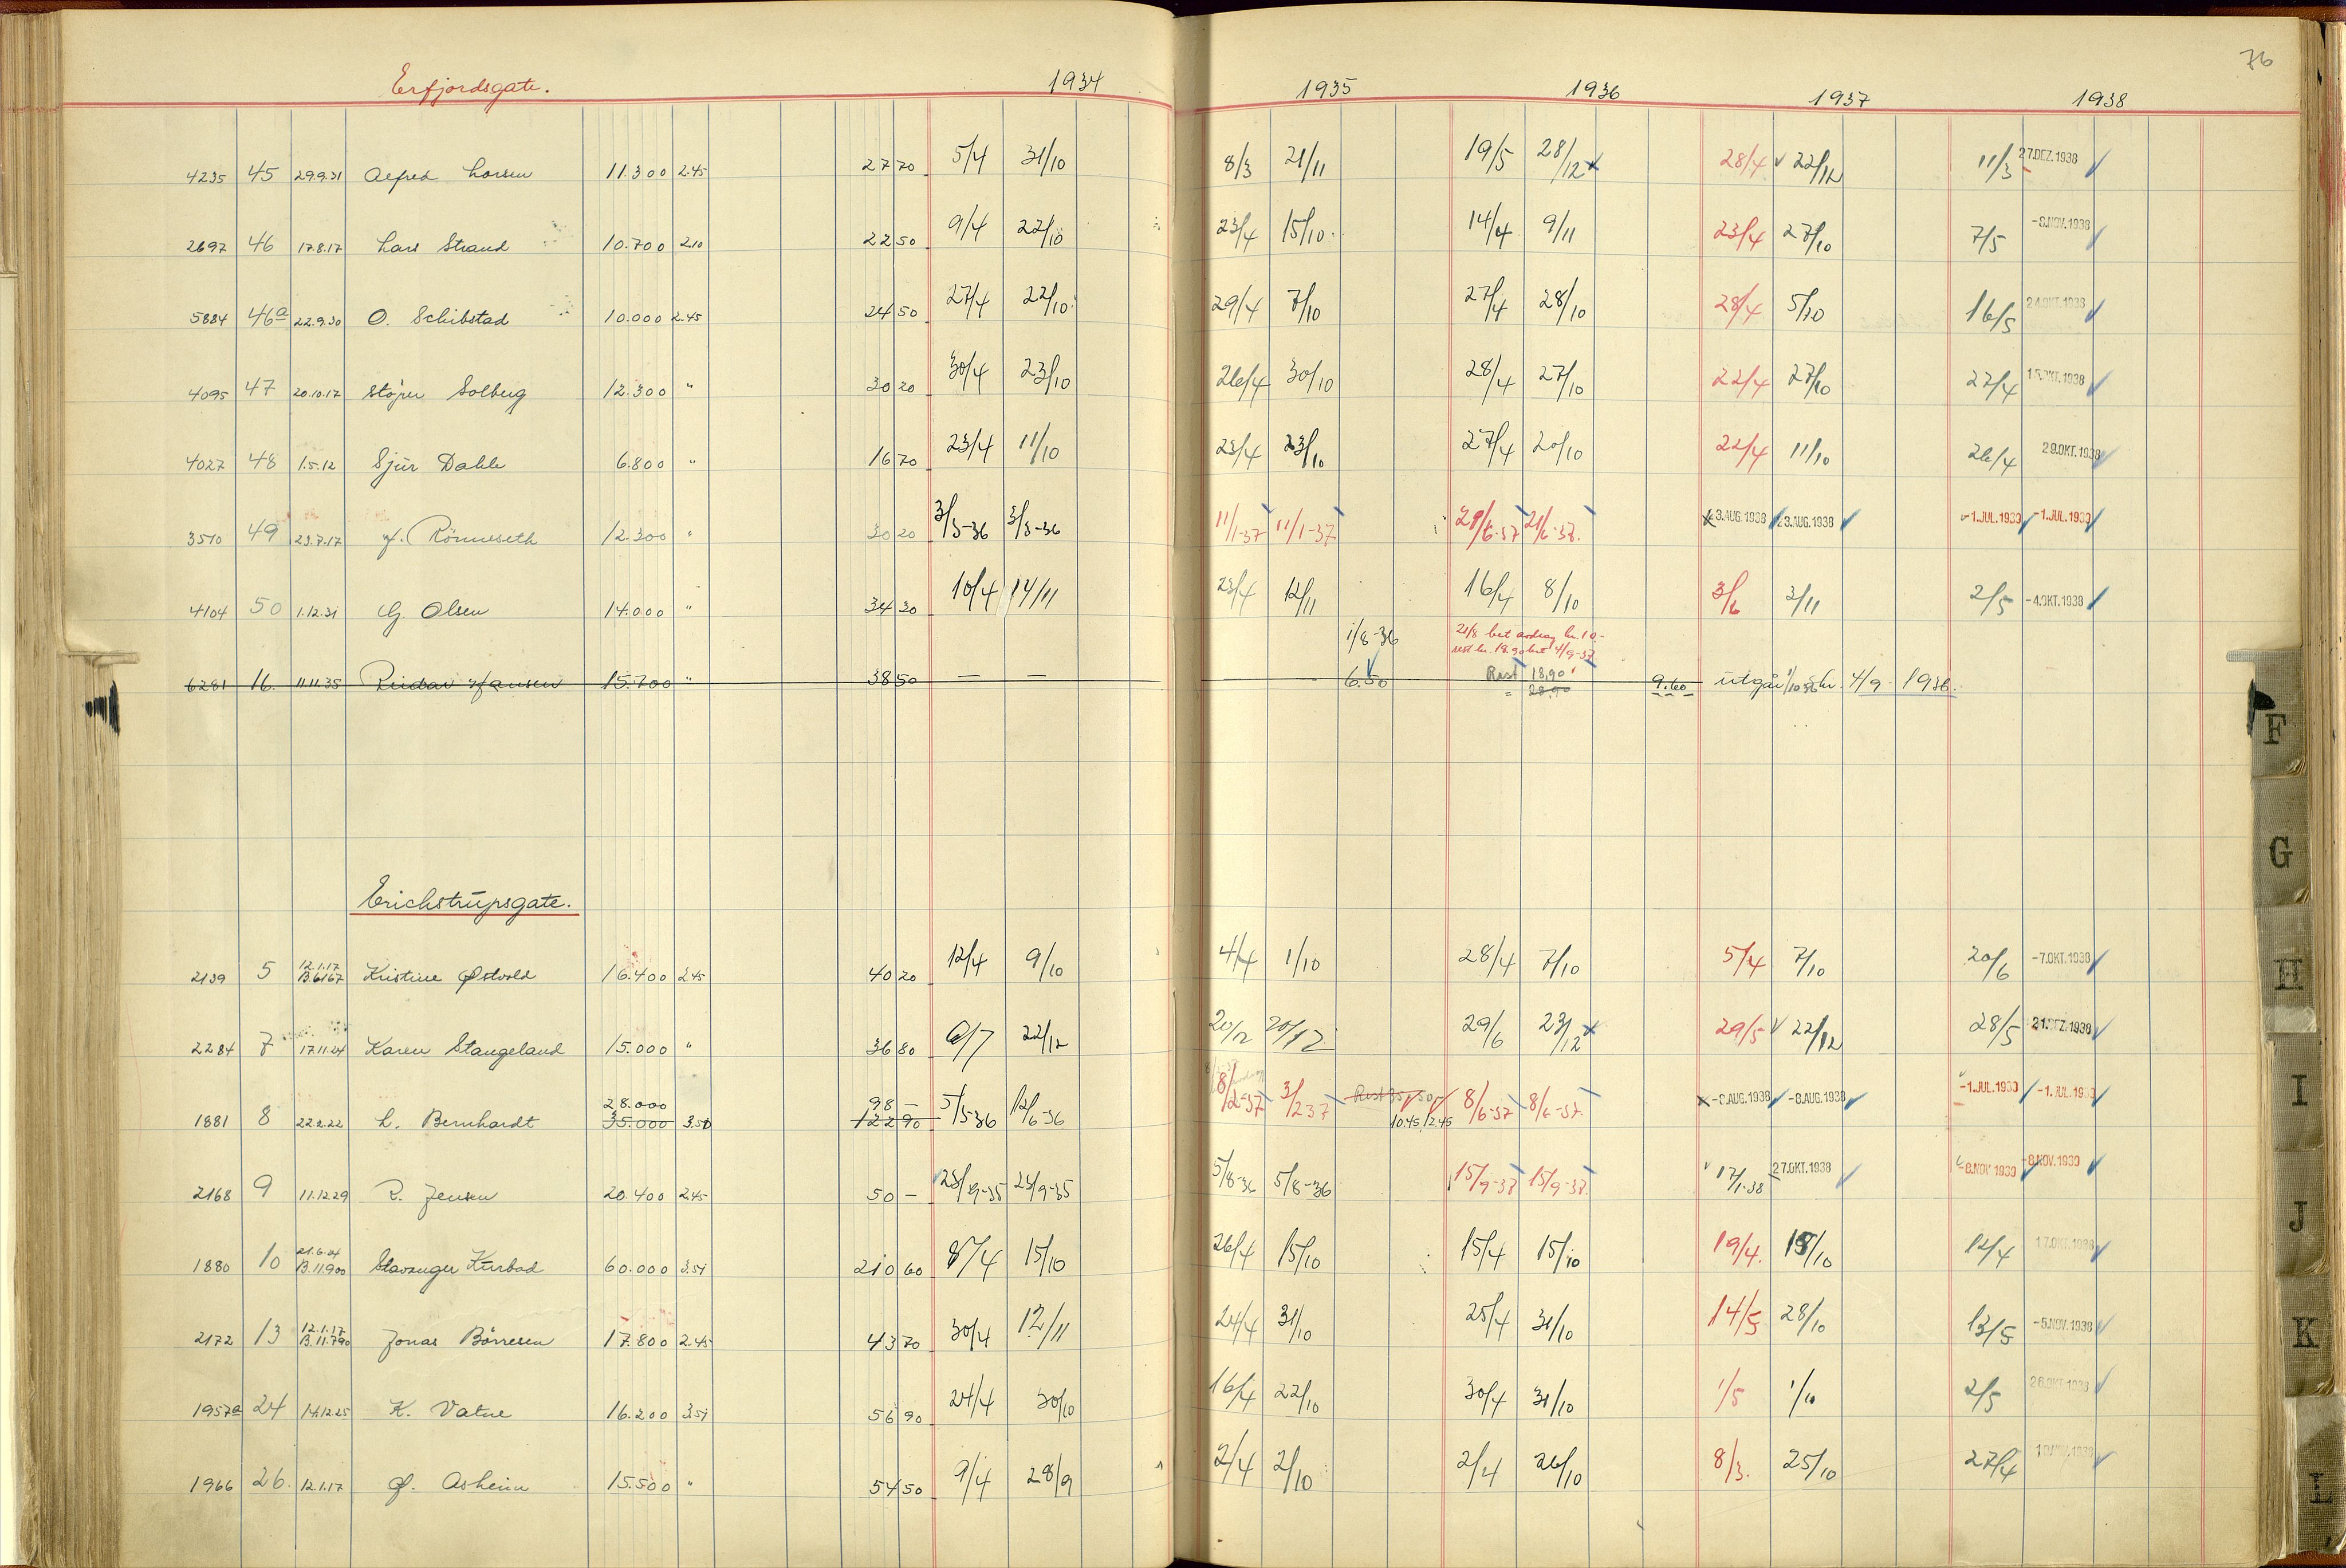 76
Erfjordsgate. 1934 1935 1936 1937 1938
4235 45 29.9.31 Alfred Larsen 11.300 2.45 27 70 5/4 31/10 8/3 21/11 19/5 28/12 28/4 22/12 11/3 27.DEZ.1938
2697 46 17.8.17 Lars Strand 10.700 2.10 22 50 9/4 22/10 23/4 15/10 14/4 9/11 23/4 27/10 7/5 -8.NOV.1938
5884 46a 22.9.30 O. Schibstad 10.000 2.45 24 50 27/4 22/10 29/4 7/10 27/4 28/10 28/4 5/10 16/5 24.OKT.1938
4095 47 20.10.17 Solberg 12.300 " 30 20 30/4 23/10 26/4 30/10 28/4 27/10 22/4 27/10 27/4 15.OKT.1938
4027 48 1.5.12 Sjur Dahle 6.800 " 16 70 23/4 11/10 23/4 23/10 27/4 20/10 22/4 11/10 26/4 29.OKT.1938
3510 49 23.7.17 J. Rönneseth 12.300 " 30 20 3/3-36 3/3-36 11/1-37 11/1-37 21/6-37 21/6-37. 23.AUG.1938 23.AUG.1938 -1.JUL.1939 -1.JUL.1939
4104 50 1.12.31 G Olsen 14.000 " 34 30 10/4 14/11 23/4 12/11 16/4 8/10 3/6 2/11 2/5 -4.OKT.1938
1/8-36 21/8 bet avdrag kr. 10.-
rest kr. 18.90 bet 4/9-37
6281 16. 11.11.35 Reidar Hansen 15.700 " 38 50 — — 6.50 Rest 18,90 9.60 utgår 1/10 36 skr. 4/9 1936.
" 28.90
Erichstrupsgate.
2139 5 12.1.17 B.6167 Kristine Østvold 16.400 2.45 40 20 12/4 9/10 4/4 1/10 28/4 7/10 5/4 7/10 20/6 -7.OKT.1938
2284 7 17.11.24 Karen Stangeland 15.000 " 36 80 6/7 22/12 20/12 20/12 29/6 23/12 29/5 22/12 28/5 21.DEZ.1938
1881 8 22.2.22 L. Bernhardt 28.000 35.000 3.51 98 — 122 90 5/3-36 12/6-36 8/2-37 3/2 37 Rest 10.45 12.45 8/6-37 8/6-37 -8.AUG.1938 -8.AUG.1938 -1.JUL.1939 -1.JUL.1939
2168 9 11.12.29 R. Jensen 20.400 2.45 50 — 23/9-35 23/9-35 5/8-36 5/8-36 15/9-37 15/9-37. 17/1-38 27.OKT.1938 -8.NOV.1939 -8.NOV.1939
1880 10 21.6.24 B.11.900 Stavanger Kurbad 60.000 3.51 210 60 8/4 15/10 26/4 15/10 15/4 15/10 19/4. 15/10 12/4 17.OKT.1938
2172 13 12.1.17 B.11.790 Jonas Börresen 17.800 2.45 43 70 30/4 12/11 24/4 31/10 25/4 31/10 14/5 28/10 13/5 -5.NOV.1938
1957a 24 14.12.25 K. Vatne 16.200 3.51 56 90 24/4 30/10 16/4 22/10 30/4 31/10 1/5 1/10 2/5 26.OKT.1938
1966 26. 12.1.17 Asheim 15.500 " 54 50 9/4 28/9 2/4 2/10 2/4 26/10 8/3. 25/10 27/4
F
G
H
I
J
K
L